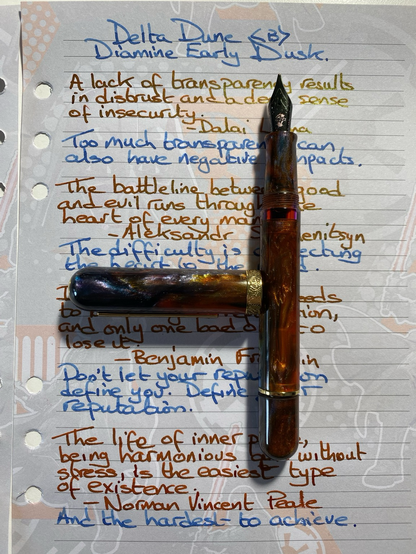 Delta Dune <B>
Diamine Early Dusk.
A lack of transparency results
in distrust and a deep sense
of insecurity.
-Dalai Lama
Too much transparency can
also have negative impacts.
The battleline between good
and evil runs through the
heart of every man
-Aleksandr Solzhenitsyn
The difficulty is
the heart
and only one bad to
lose it.
-Benjamin Franklin
Don't let your reputation
define you. Define your
reputation.
The life of inner peace,
being harmonious without
stress, is the easiest type
of existence.
- Norman Vincent Peale
And the hardest to achieve.